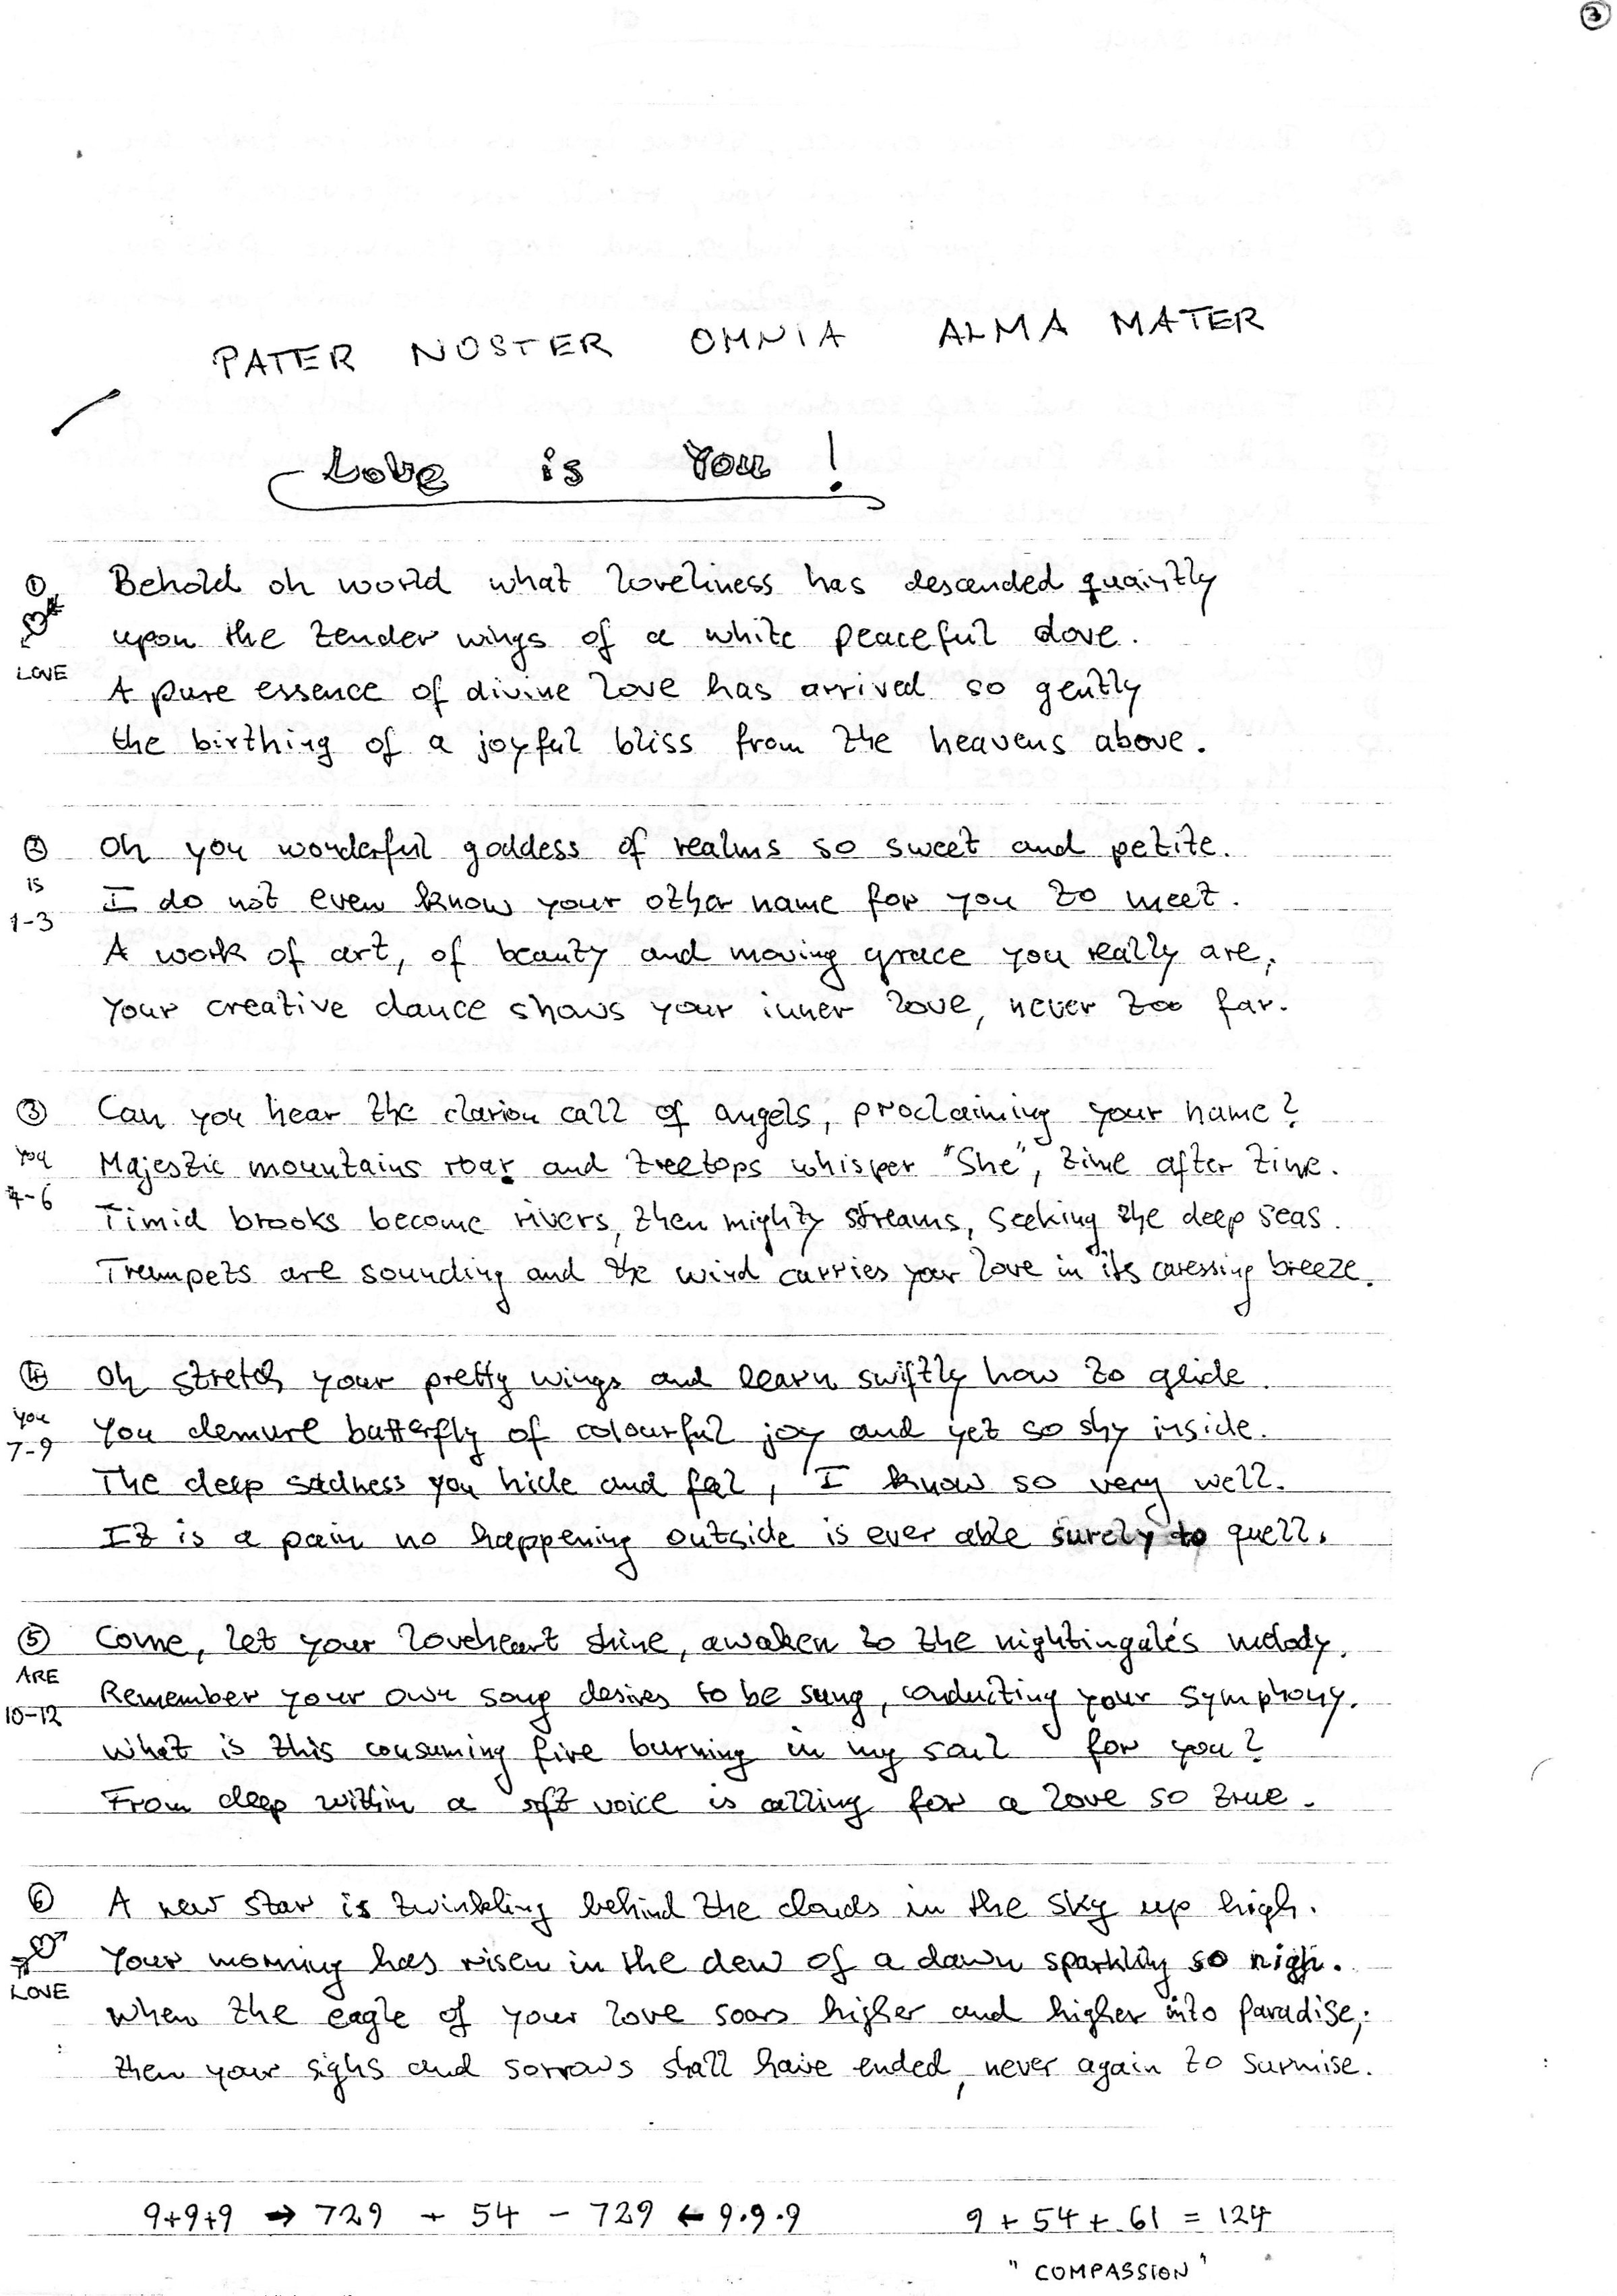 3
PATER NOSTER OMNIA ALMA MATER
Love is You!
1 Behold oh world what loveliness has descended quaintly
upon the tender wings of a white peaceful dove.
LOVE
A pure essence of divine love has arrived so gently
the birthing of a joyful bliss from the heavens above.
2 Oh you wonderful goddess of realms so sweet and petite.
is
I do not even know your other name for you to meet.
1-3
A work of art, of beauty and moving grace you really are,
Your creative dance shows your inner love, never too far.
3 Can you hear the clarion call of angels, proclaiming your name?
you
Majestic mountains roar and treetops whisper "She", time after time.
4-6
Timid brooks become rivers, then mighty streams, seeking the deep seas.
Trumpets are sounding and the wind carries your love in its caressing breeze.
4 Oh stretch your pretty wings and learn swiftly how to glide.
you
You demure butterfly of colourful joy and yet so shy inside.
7-9
The deep sadness you hide and feel, I know so very well.
It is a pain no happening outside is ever able surely to quell.
5 Come, let your loveheart shine, awaken to the nightingale's melody.
ARE
Remember your own song desires to be sung, conducting your symphony.
10-12
What is this consuming fire burning in my soul for you?
From deep within a soft voice is calling for a love so true.
6 A new star is twinkling behind the clouds in the sky up high.
Your morning has risen in the dew of a dawn sparkling so nigh.
LOVE
When the eagle of your love soars higher and higher into paradise,
then your sighs and sorrows shall have ended, never again to surmise.
9+9+9 → 729 + 54 - 729 ← 9.9.9 9 + 54 + 61 = 124
"COMPASSION"